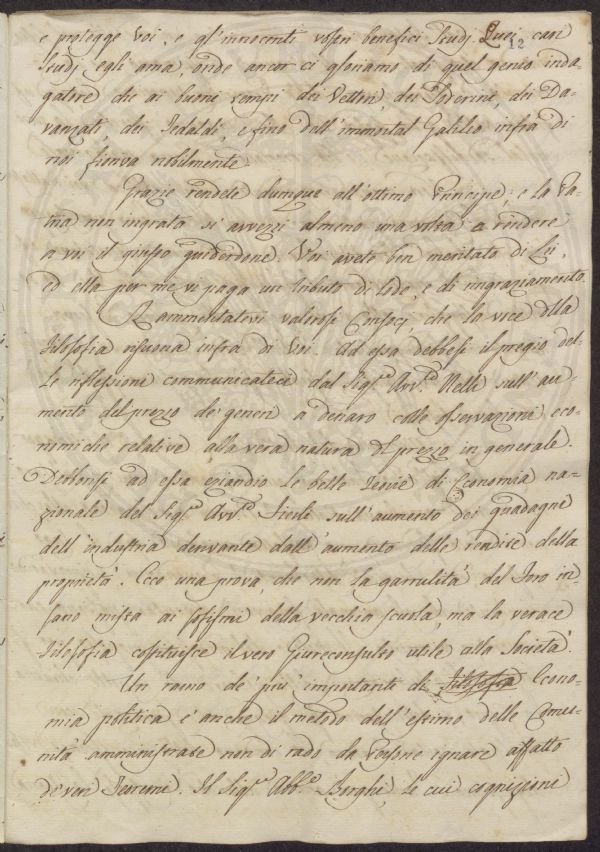 e protegge Voi, e gl'innocenti vostri benefici studj. Quei cari
12
studj egli ama, onde ancor ci gloriamo di quel genio inda-
gatore che ai buoni tempi dei Vettori, dei Soderini, dei Da-
vanzati, dei Tedaldi, e fino dell'immortal Galileo infra di
noi fioriva nobilmente.
Grazie rendete dunque all'ottimo Principe; e la Pa-
tria non ingrata si avvezzi almeno una volta a rendere
a voi il giusto guiderdone. Voi avete ben meritato di Lei,
ed ella per me vi paga un tributo di lode, e di ringraziamento.
Rammentatevi valorosi Consocj, che la voce della
Filosofia risuona infra di Voi. Ad essa debbesi il pregio del-
le riflessioni communicateci dal Sigr. Avv. Nelli sull'au-
mento del prezzo de' generi a denaro colle osservazioni eco-
nomiche relative alla vera natura del prezzo in generale.
Debbonsi ad essa eziandio le belle Teorie di Economia na-
zionale del Sigr. Avv. sull'aumento dei guadagni
dell'industria derivante dall'aumento delle rendite della
proprietà. Ecco una prova, che non la garrulità del Foro in-
sano mista ai sofismi della vecchia scuola, ma la verace
Filosofia costituisce il vero Giureconsulto utile alla Società.
Un ramo de' più importanti di Filosofia Econo-
mia politica è anche il metodo dell'estimo delle Comu-
nità amministrate non di rado da Persone ignare affatto
de' veri Teoremi. Il Sigr. Abb. Borghi, le cui cognizioni